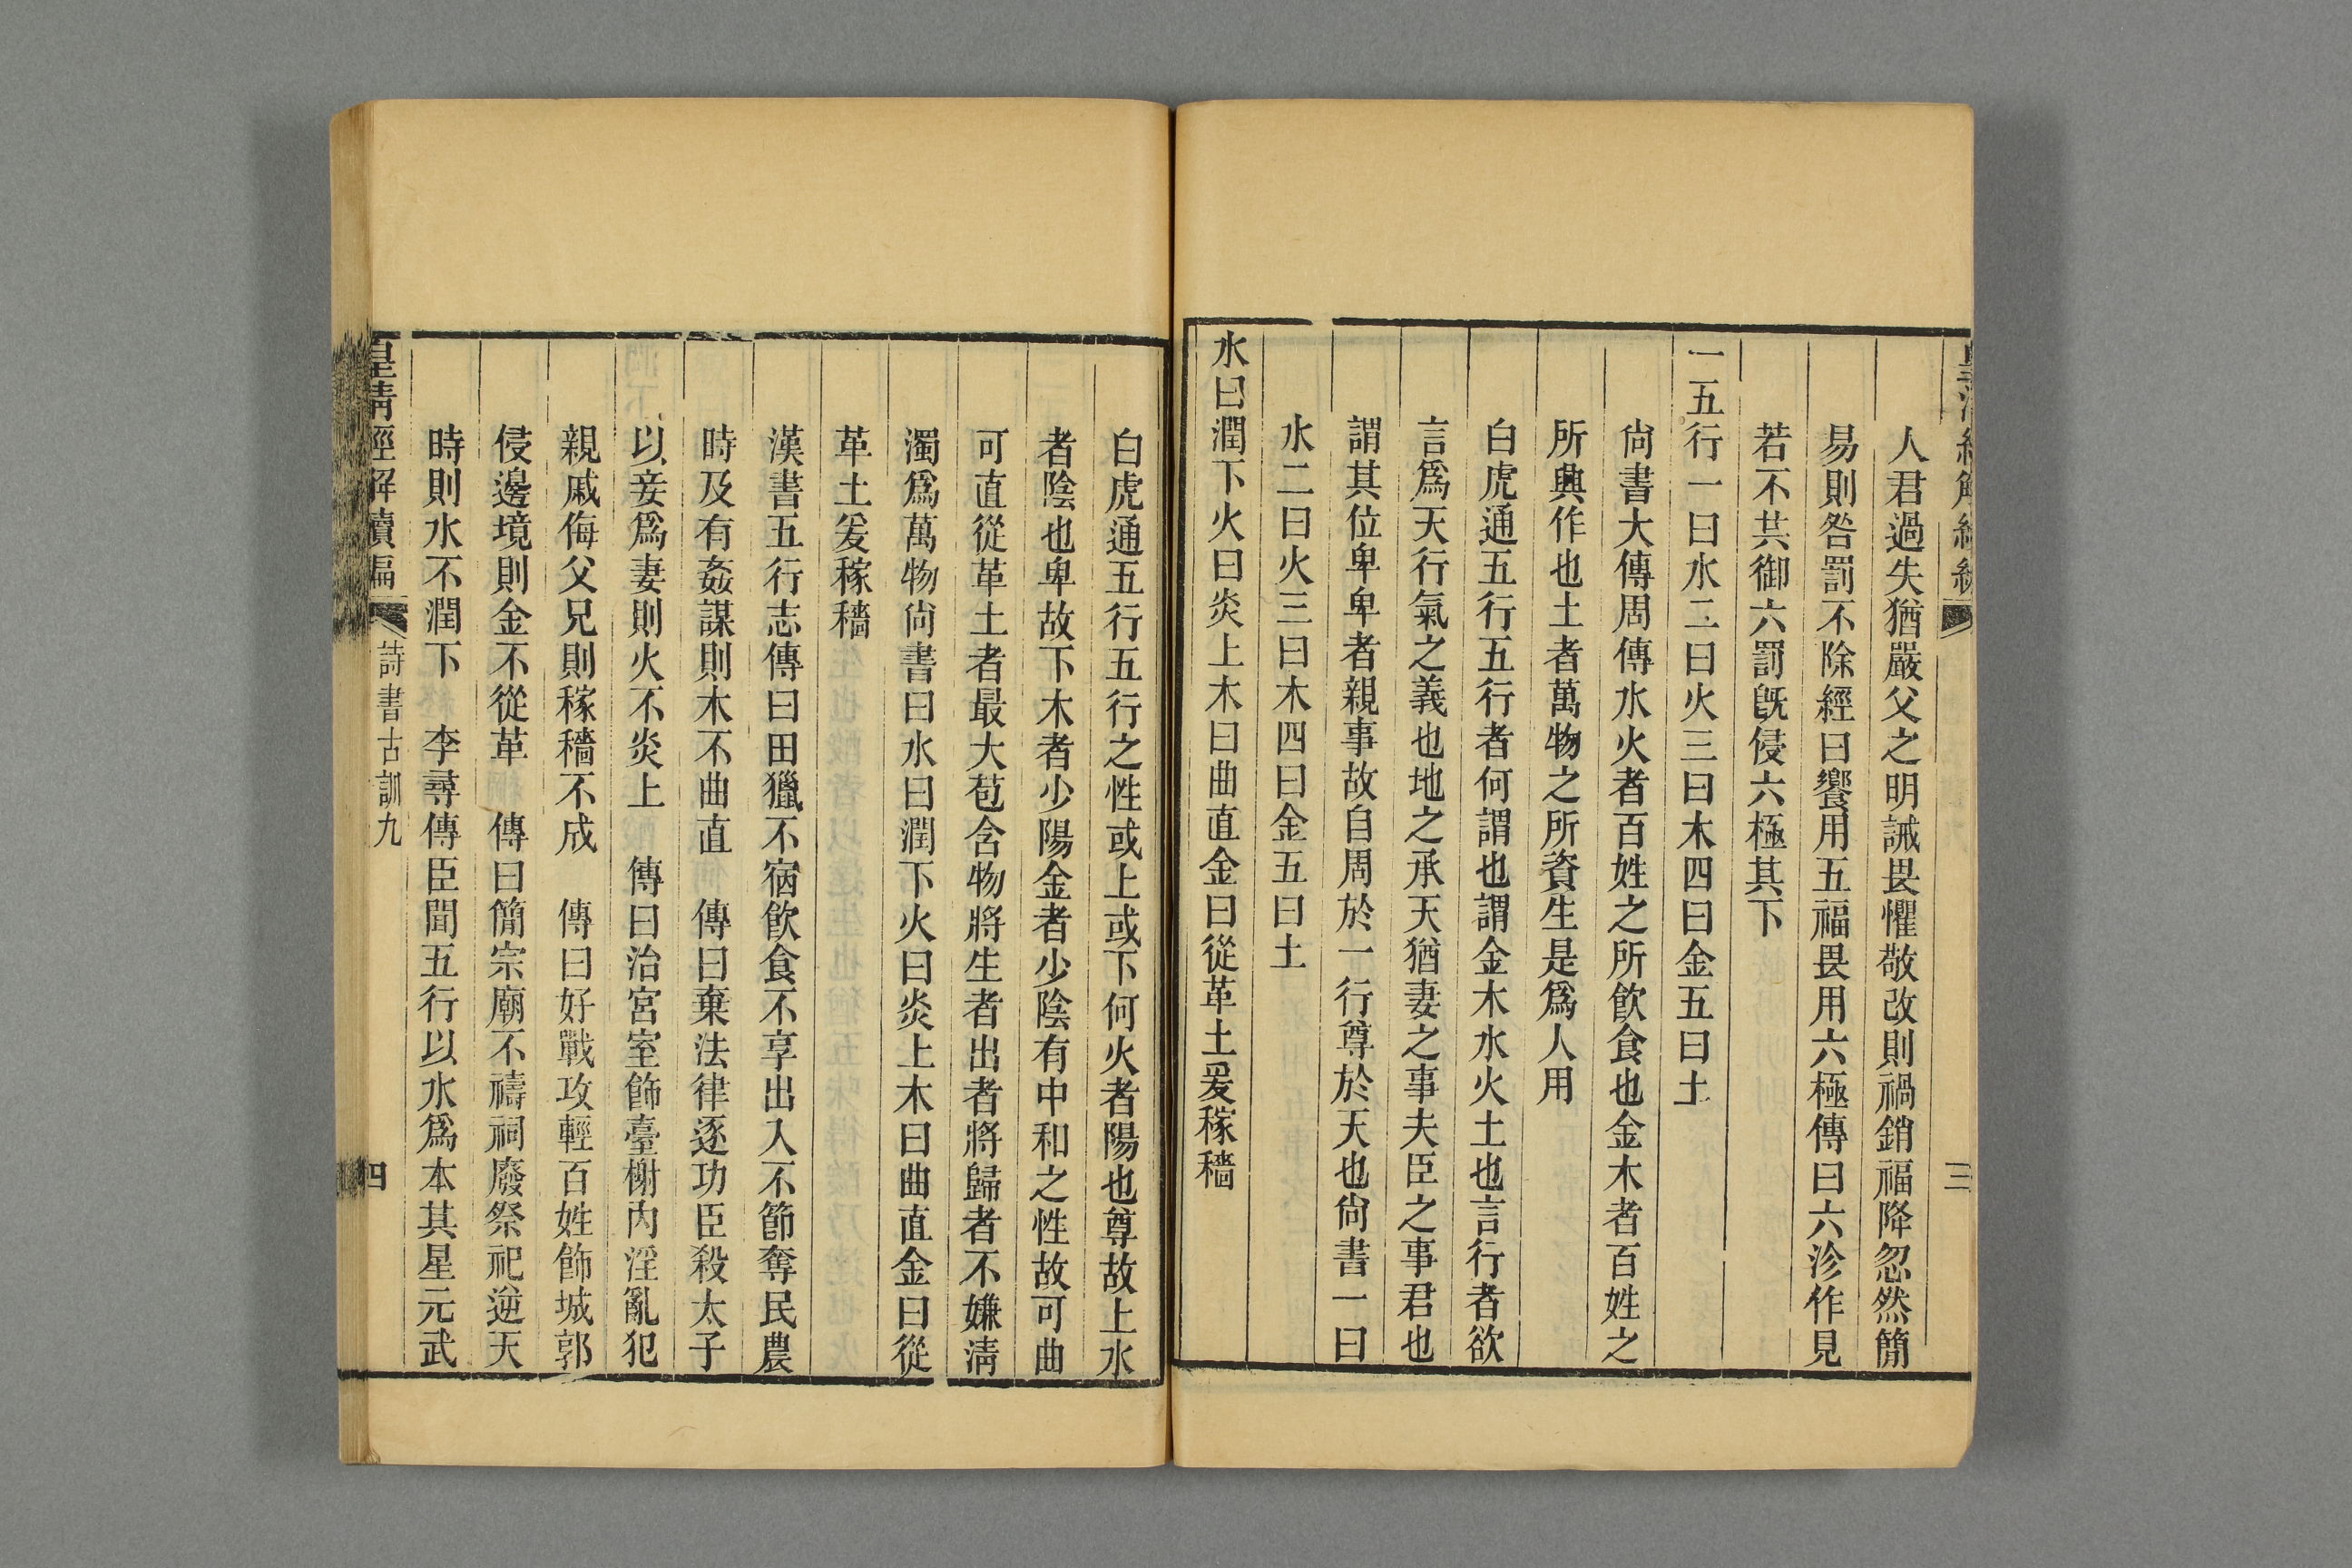 人君過失猶嚴父之明誡畏懼敬改則禍銷福降忽然簡
易則咎罰不除經曰饗用五福畏用六極傳曰六沴作見
若不共御六罰旣侵六極其下
一五行一曰水二曰火三曰木四曰金五曰土
尙書大傳周傳水火者百姓之所飮食也金木者百姓之
所興作也土者萬物之所資生是爲人用
白虎通五行五行者何謂也謂金木水火土也言行者欲
言爲天行氣之義也地之承天猶妻之事夫臣之事君也
謂其位卑卑者親事故自周於一行尊於天也尙書一曰
水二曰火三曰木四曰金五曰土
水曰潤下火曰炎上木曰曲直金曰從革土爰稼穡
三
白虎通五行五行之性或上或下何火者陽也尊故上水
者陰也卑故下木者少陽金者少陰有中和之性故可曲
可直從革土者最大苞含物將生者出者將歸者不嫌淸
濁爲萬物尙書曰水曰潤下火曰炎上木曰曲直金曰從
革土爰稼穡
漢書五行志傳曰田獵不宿飮食不享出入不節奪民農
時及有姦謀則木不曲直　傳曰棄法律逐功臣殺太子
以妾爲妻則火不炎上　傳曰治宮室飾臺榭內淫亂犯
親戚侮父兄則稼穡不成　傳曰好戰攻輕百姓飾城郭
侵邊境則金不從革　傳曰簡宗廟不禱祠廢祭祀逆天
時則水不潤下　李尋傳臣聞五行以水爲本其星元武
皇淸經解續編　詩書古訓九　四